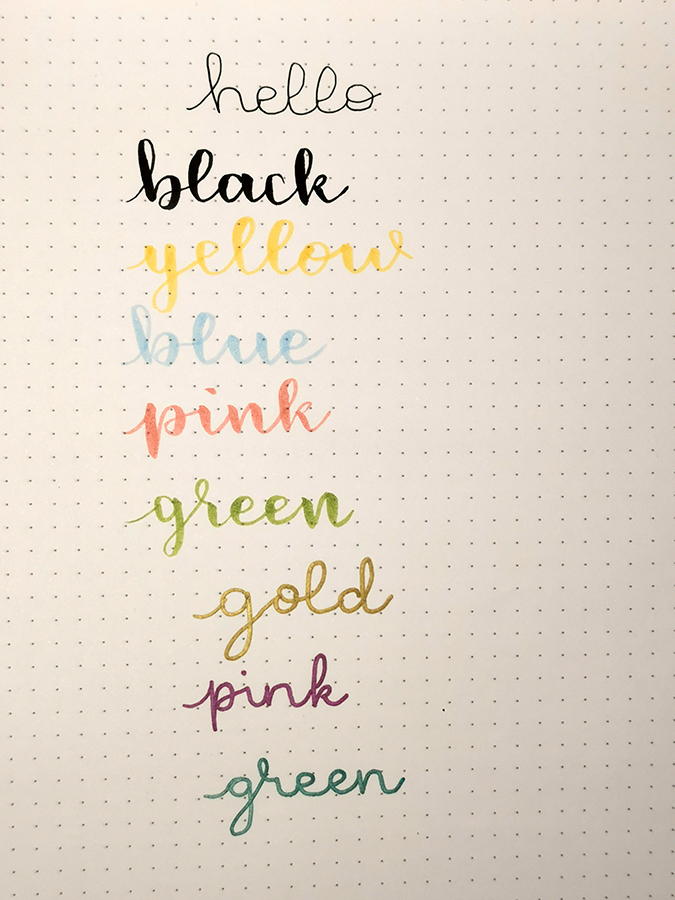 hello
black
yellow
blue
pink
green
gold
pink
green